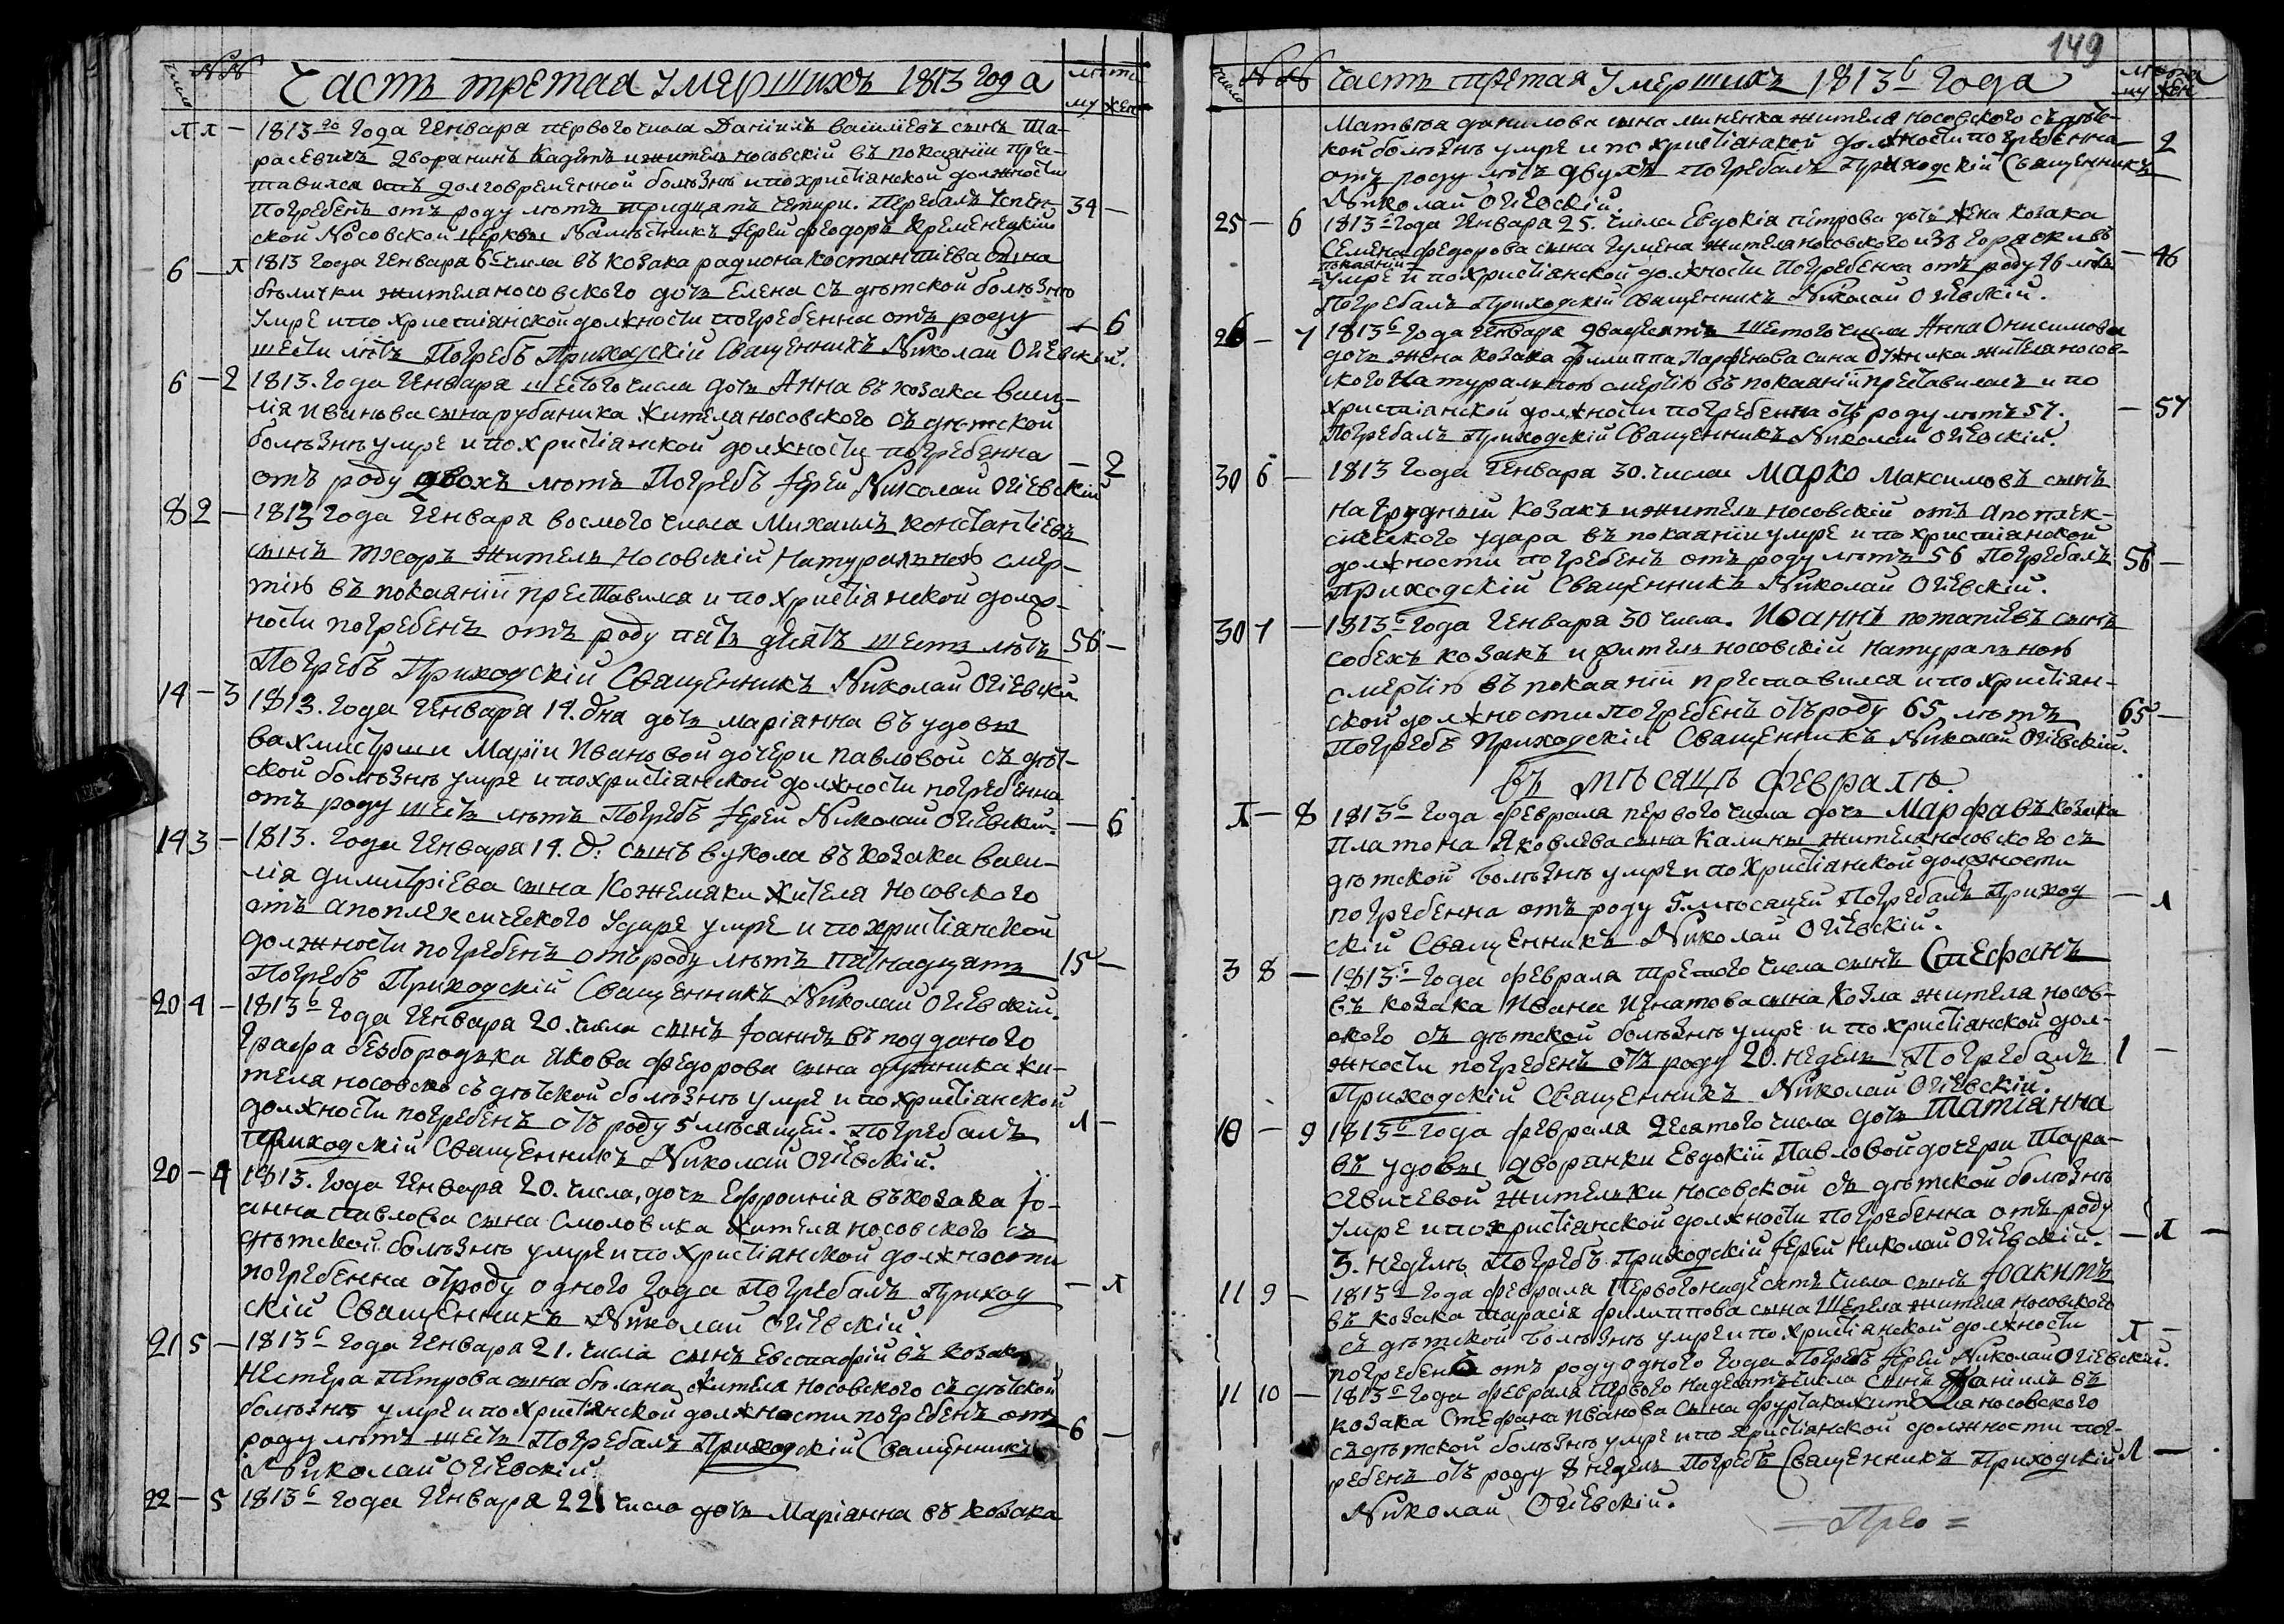 число №№ Часть третая Умершихъ 1813 года лѣта
му жен
1 1 — 1813го года Генваря первого числа Даніилъ василіевъ сынъ Та-
расевичъ дворянинъ кадетъ и житель носовскій въ покаяніи прѣ-
ставился отъ долговременной болѣзнѣ и по христіянской должности
погребенъ отъ роду лѣтъ тридцатъ четири. Погребалъ Успен- 34 —
ской Носовской церквы Намѣстникъ Іерей Феодоръ Кременецкій
6 — 1 1813 года Генваря 6г числа въ козака радиона костантіева сына
бѣлички жителя носовского дочь Елена съ дѣтской болѣзнѣ
умре и по христіянской должности погребенна отъ роду — 6
шести лѣтъ Погребъ Приходскій Священникъ Николай Огіевскій.
6 — 2 1813. года Генваря шестого числа дочь Анна въ козака васи-
лія Иванова сына рубаника жителя носовского съ дѣтской
болѣзнѣ умре и по христіянской должности погребенна
отъ роду двохъ лѣтъ Погребъ Іерей Николай Огіевскій — 2
8 2 — 1813 года Генваря восмого числа Михаилъ константіевъ
сынъ тхоръ житель носовскій Натуральною смер-
тію въ покаяніи преставился и по христіянской долж-
ности погребенъ отъ роду пять десятъ шесть лѣтъ 56 —
Погребъ Приходскій Священникъ Николай Огіевскій
14 — 3 1813. года Генваря 14. дня дочь маріанна въ удовы
вахмистрши Маріи Ивановой дочери павловой съ дѣт-
ской болѣзнѣ умре и по христіянской должности погребенна
отъ роду шесть лѣтъ Погребъ Іерей Николай Огіевскій. — 6
14 3 — 1813. года Генваря 14. д: сынъ вукола въ козака васи-
лія димитріева сына Кожемяки жителя носовского
отъ апоплексического удара умре и по христіянской
должности погребенъ отъ роду лѣтъ пятнадцать 15 —
Погребъ Приходскій Священникъ Николай Огіевскій.
20 4 — 1813г года Генваря 20. числа сынъ Іоаннъ въ подданого
Графа безбородька Якова Федорова сына жи-
теля носовско съ дѣтской болѣзнѣ умре и по христіянской
должности погребенъ отъ роду 5 мѣсяцей. Погребалъ 1 —
приходскій Священникъ Николай Огіевскій.
20 — 4 1813. года Генваря 20. числа, дочь Ефросинія въ козака Іо-
анна павлова сына Смоловика жителя носовского съ
дѣтской болѣзнѣ умре и по христіянской должности
погребенна отъ роду одного года Погребалъ Приход — 1
скій Священникъ Николай Огіевскій.
21 5 — 1813г года Генваря 21. числа сынъ Евстафій въ козака
Нестера Петрова сына бѣлана жителя носовского съ дѣтской
болѣзнѣ умре и по христіянской должности погребенъ отъ
роду лѣтъ шесть Погребалъ Приходскій Священникъ 6 —
Николай Огіевскій.
22 — 5 1813г года Генваря 22 числа дочь Маріанна въ козака
149
число №№ Часть третая Умершихъ 1813г года лѣта
му жен
Матвѣя данилова сына миненка жителя носовского съ дѣтс-
кой болѣзнѣ умре и по христіянской должности погребенна — 2
отъ роду лѣтъ двухъ погребалъ Приходскій Священникъ
Николай Огіевскій.
25 — 6 1813г года Генваря 25. числа Евдокія петрова дочь жена козака
Семена Федорова сына гумена жителя носовского изъ горячки въ
покаяніи
умре и по христіянской должности погребенна отъ роду 46 лѣтъ — 46
Погребалъ Приходскій Священникъ Николай Огіевскій.
26 — 7 1813г года Генваря двадесятъ шестого числа Анна Онисимова
дочь жена козака филиппа Парфенова сина жителя носов-
ского Натуральною смертію въ покаяніи преставилась и по
христіянской должности погребенна отъ роду лѣтъ 57. — 57
Погребалъ Приходскій Священникъ Николай Огіевскій.
30 6 — 1813 года Генваря 30. числа Марко Максимовъ сынъ
Нагрудный козакъ и житель носовскій отъ апоплек-
сического удара въ покаяніи умре и по христіянской
должности погребенъ отъ роду лѣтъ 56 Погребалъ 56 —
Приходскій Священникъ Николай Огіевскій.
30 7 — 1813г года Генваря 30 числа. Иоаннъ потапіевъ сынъ
собехъ козакъ и житель носовскій натуральною
смертію въ покаяніи преставился и по христіян-
ской должности погребенъ отъ роду 65 лѣтъ 65 —
Погребъ Приходскій Священникъ Николай Огіевскій.
въ мѣсяцѣ февралѣ.
1 — 8 1813г года февраля первого числа дочь Марфа въ козака
Платона Яковлева сына Калины жителя носовского съ
дѣтской болѣзнѣ умре и по христіянской должности
погребенна отъ роду 5. мѣсяцей Погребалъ Приход — 1
скій Священникъ Николай Огіевскій.
3 8 — 1813г года февраля третого числа сынъ Стефанъ
въ козака Ивана Игнатова сына Козла жителя носов-
ского съ дѣтской болѣзнѣ умре и по христіянской дол-
жности погребенъ отъ роду 20. недель Погребалъ 1 —
Приходскій Священникъ Николай Огіевскій.
10 — 9 1813г года февраля десятого числа дочь Татіанна
въ удовы дворянки Евдокіи Павловой дочери Тара-
севичевой жительки носовской съ дѣтской болѣзнѣ
умре и по христіянской должности погребенна отъ роду
3. неделѣ Погребъ Приходскій Іерей Николай Огіевскій. — 1 —
11 9 — 1813г года февраля первогонадесять числа сынъ Іоакимъ
въ козака тарасія филиппова сына Шепеля жителя носовского
съ дѣтской болѣзнѣ умре и по христіянской должности 1 —
погребенъ отъ роду одного года Погребъ Іерей Николай Огіевскій.
11 10 — 1813г года февраля первого надесятъ числа сынъ Даніилъ въ
козака Стефана Иванова сына фурсака жителя носовского
съ дѣтской болѣзнѣ умре и по христіянской должности пог-
ребенъ отъ роду 8 недель Погребъ Священникъ Приходскій 1 —
Николай Огіевскій.